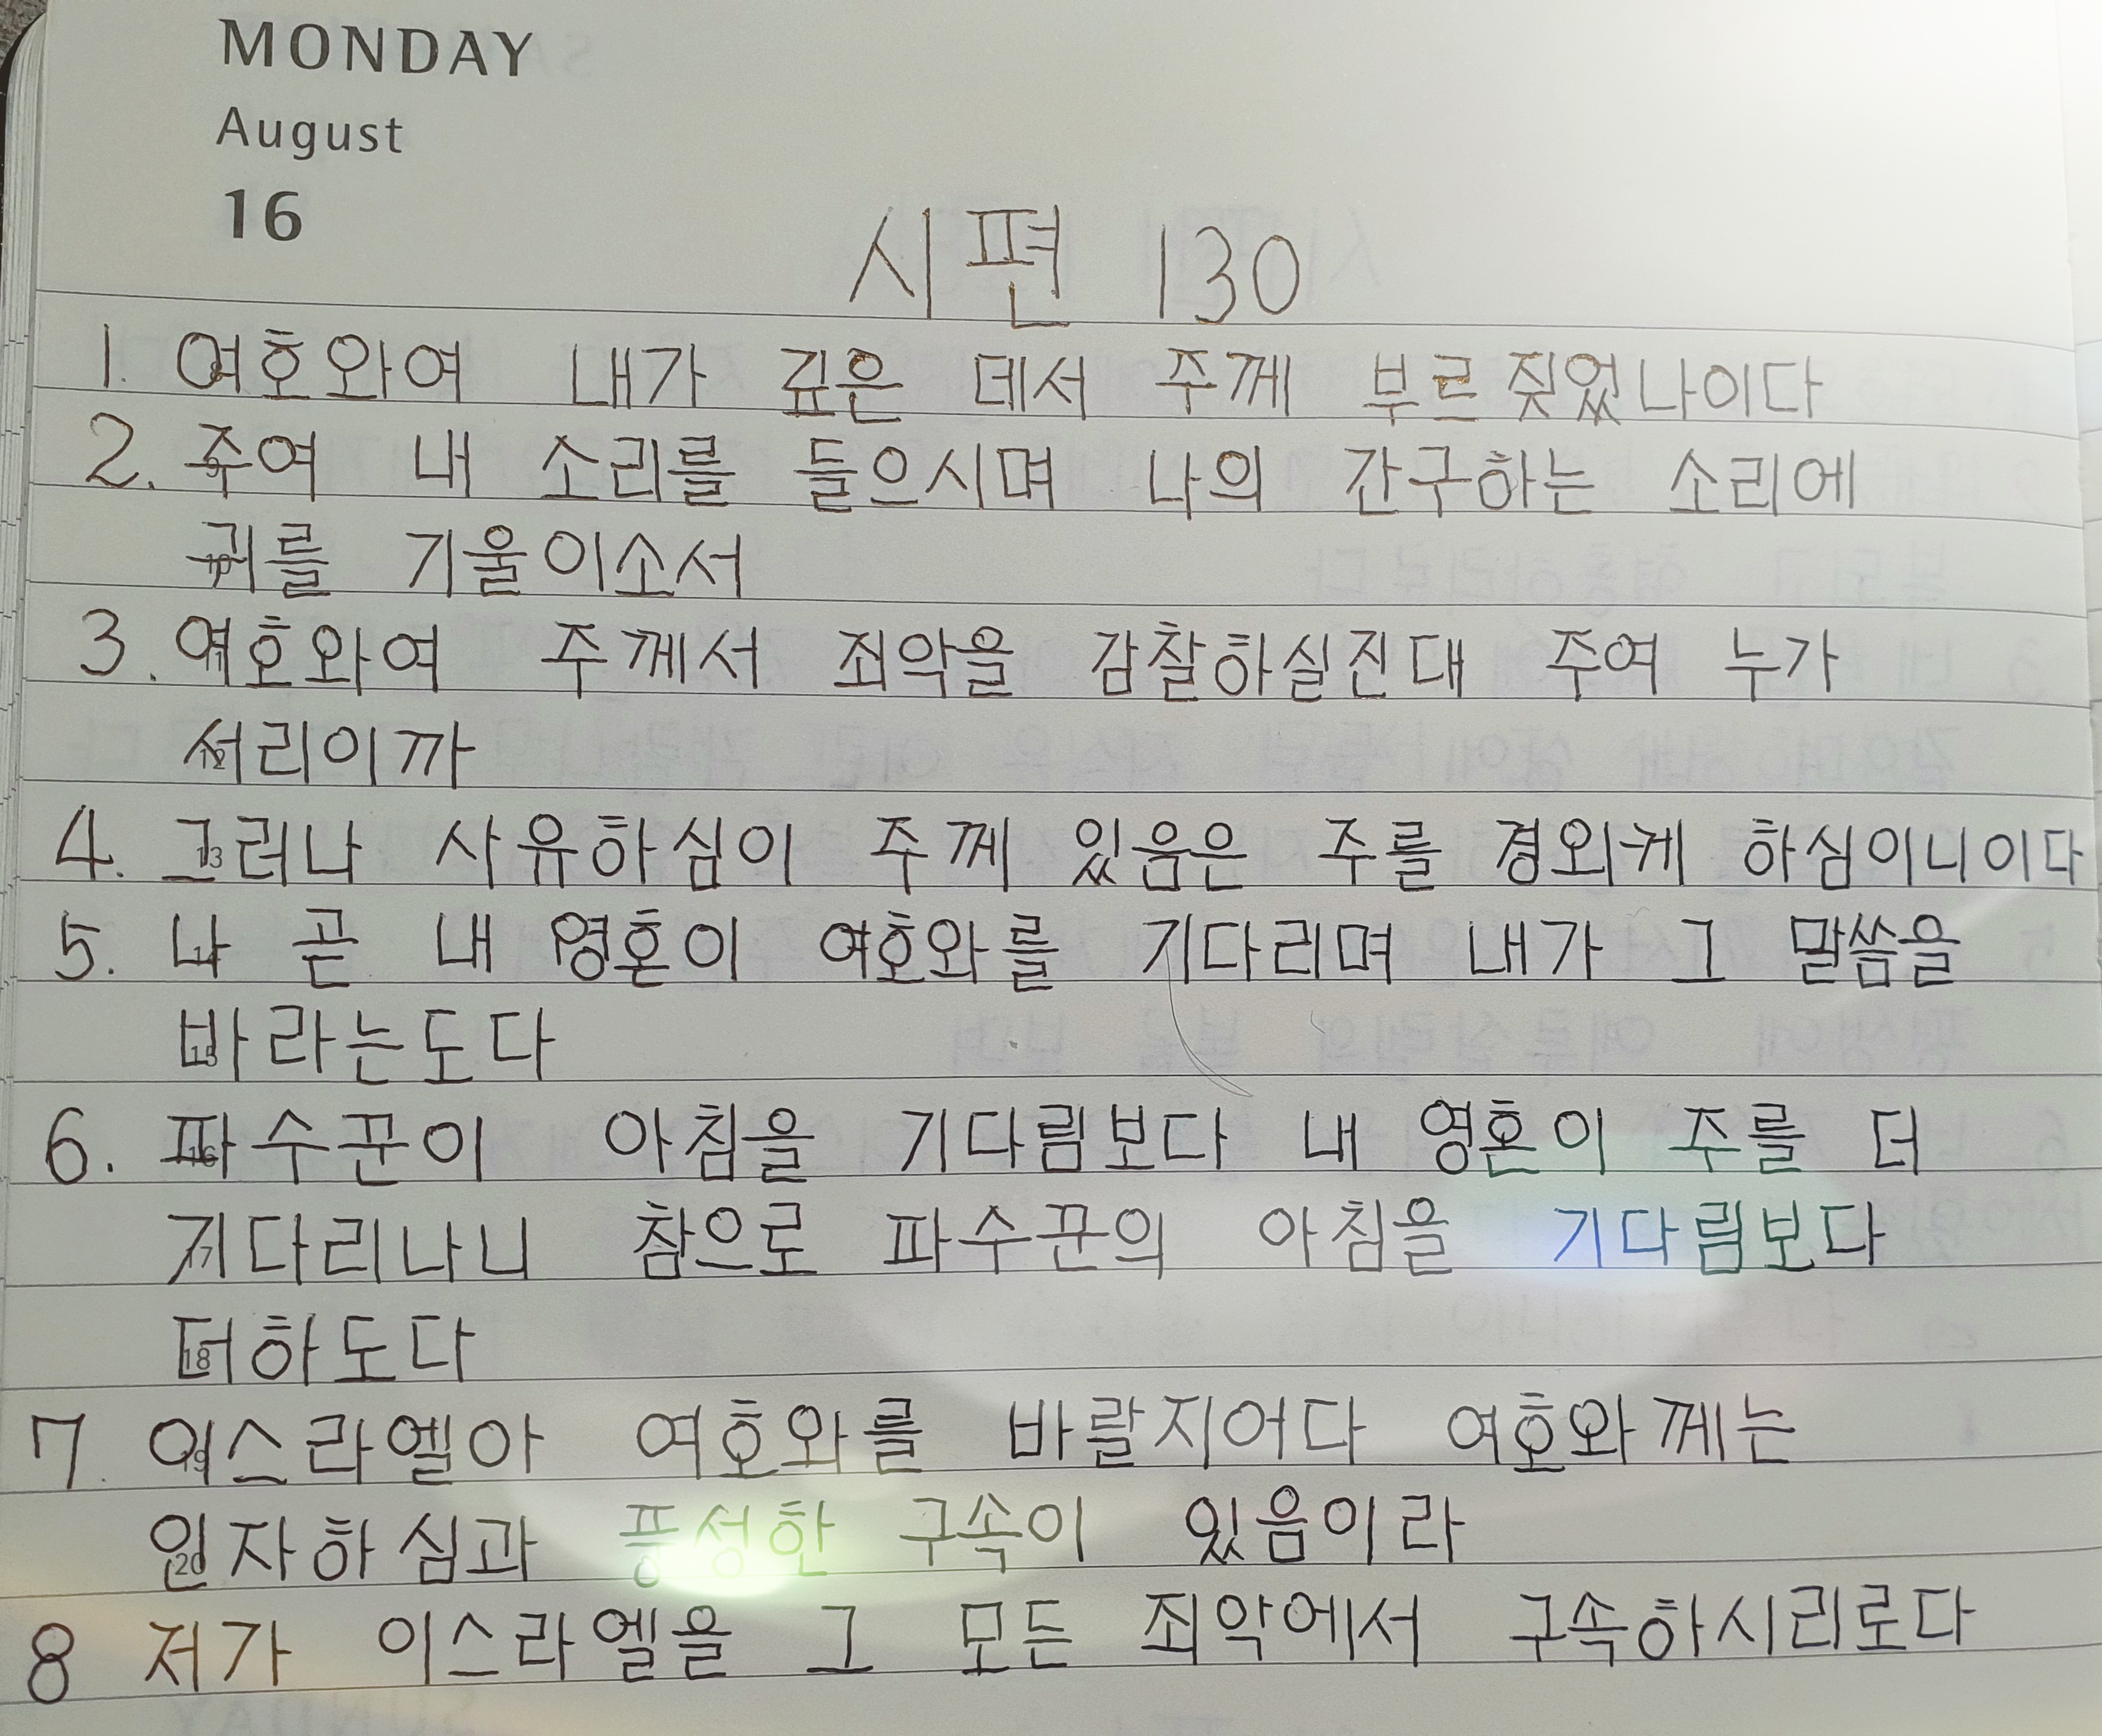 MONDAY
August
16
시편 130
1. 여호와여 내가 깊은 데서 주께 부르짖었나이다
2. 주여 내 소리를 들으시며 나의 간구하는 소리에
귀를 기울이소서
3. 여호와여 주께서 죄악을 감찰하실진대 주여 누가
서리이까
4. 그러나 사유하심이 주께 있음은 주를 경외케 하심이니이다
5. 나 곧 내 영혼이 여호와를 기다리며 내가 그 말씀을
바라는도다
6. 파수꾼이 아침을 기다림보다 내 영혼이 주를 더
기다리나니 참으로 파수꾼의 아침을 기다림보다
더하도다
7. 이스라엘아 여호와를 바랄지어다 여호와께는
인자하심과 풍성한 구속이 있음이라
8 저가 이스라엘을 그 모든 죄악에서 구속하시리로다